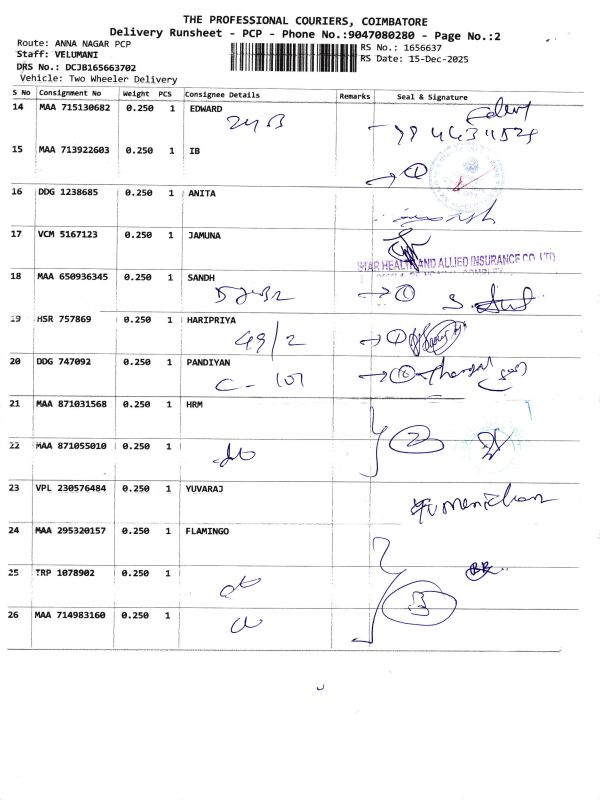 THE PROFESSIONAL COURIERS, COIMBATORE
Delivery Runsheet - PCP - Phone No.:9047080280 - Page No.:2
Route: ANNA NAGAR PCP
Staff: VELUMANI
DRS No.: DCJB165663702
Vehicle: Two Wheeler Delivery
RS No.: 1656637
RS Date: 15-Dec-2025
S No Consignment No Weight PCS Consignee Details Remarks Seal & Signature
14 MAA 715130682 0.250 1 EDWARD
15 MAA 713922603 0.250 1 IB
1
16 DDG 1238685 0.250 1 ANITA
17 VCM 5167123 0.250 1 JAMUNA
STAR HEALTH AND ALLIED INSURANCE CO. LTD
18 MAA 650936345 0.250 1 SANDH
1
19 HSR 757869 0.250 1 HARIPRIYA
49/2 1
20 DDG 747092 0.250 1 PANDIYAN
C - 101
21 MAA 871031568 0.250 1 HRM
2
22 MAA 871055010 0.250 1
do
23 VPL 230576484 0.250 1 YUVARAJ
24 MAA 295320157 0.250 1 FLAMINGO
25 TRP 1078902 0.250 1
do
3
26 MAA 714983160 0.250 1